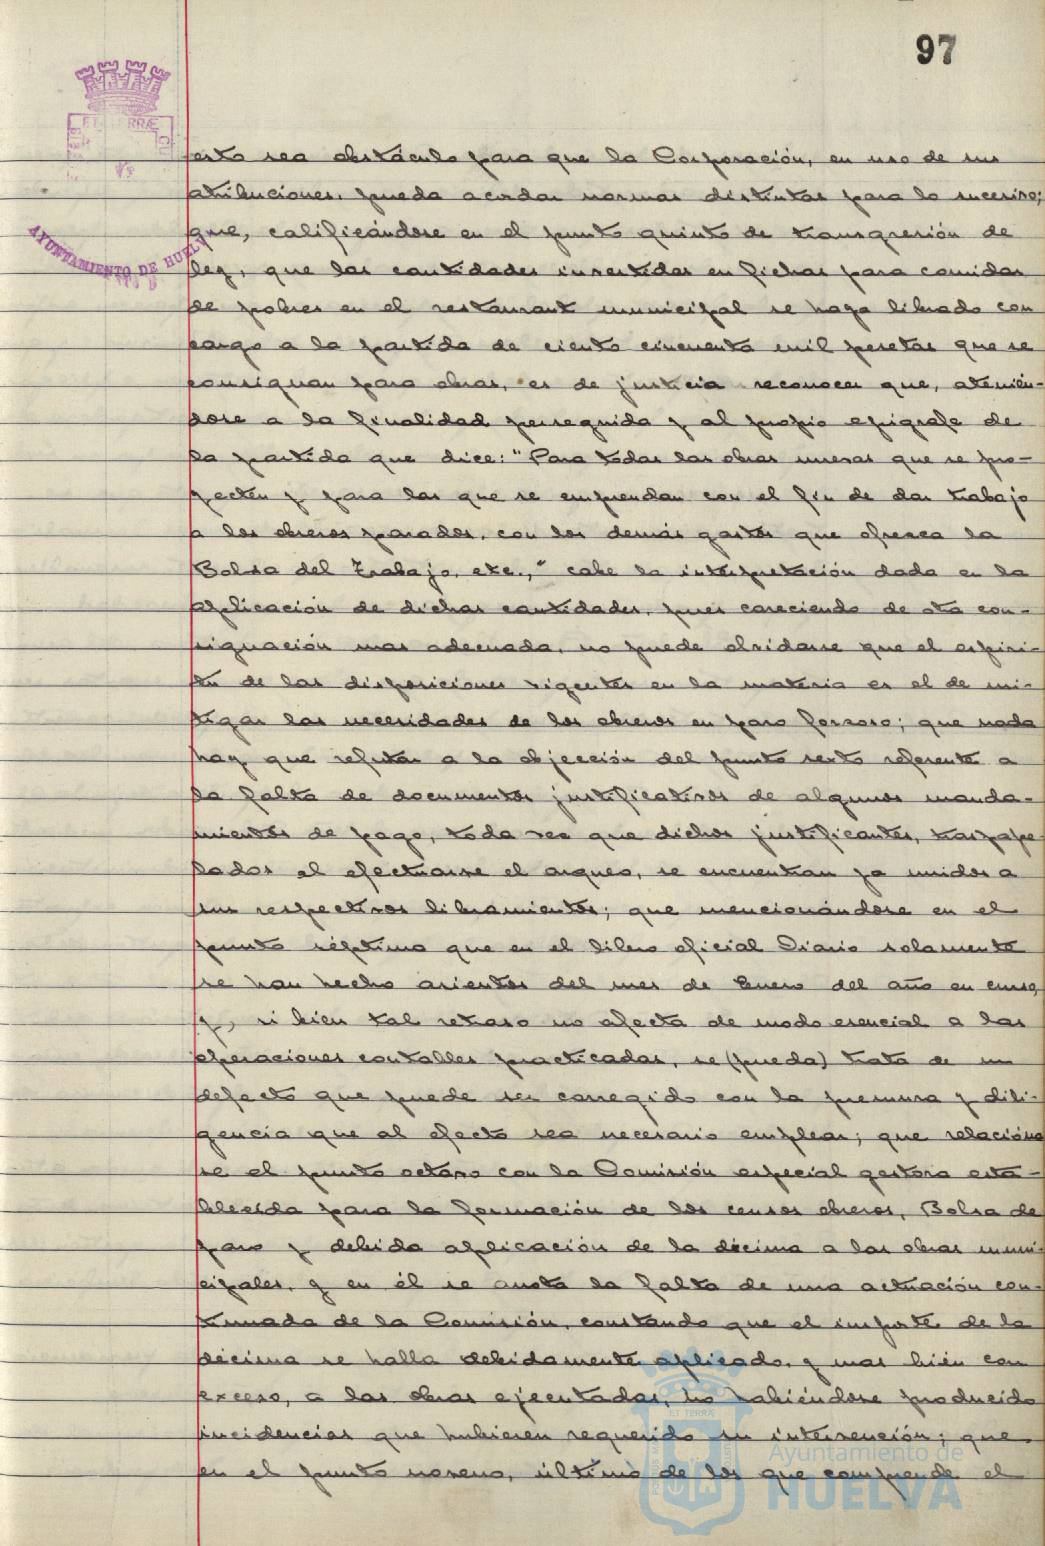 97
ET TERRÆ
AYUNTAMIENTO DE HUELVA
esto sea obstáculo para que la Corporación, en uso de sus
atribuciones, pueda acordar normas distintas para lo sucesivo;
que, calificándose en el punto quinto de transgresión de
ley, que las cantidades invertidas en fichas para comidas
de pobres en el restaurant municipal se haya librado con
cargo a la partida de ciento cincuenta mil pesetas que se
consignan para obras, es de justicia reconocer que, atenién-
dose a la finalidad perseguida y al propio epígrafe de
la partida que dice: "Para todas las obras nuevas que se pro-
yecten y para las que se emprendan con el fin de dar trabajo
a los obreros parados, con los demás gastos que ofrezca la
Bolsa del Trabajo, etc.," cabe la interpretación dada en la
aplicación de dichas cantidades, pues careciendo de otra con-
signación mas adecuada, no puede olvidarse que el espíri-
tu de las disposiciones vigentes en la materia es el de mi-
tigar las necesidades de los obreros en paro forzoso; que nada
hay que refutar a la objección del punto sexto referente a
la falta de documentos justificativos de algunos manda-
mientos de pago, toda vez que dichos justificantes, traspape
lados al efectuarse el arqueo, se encuentran ya unidos a
sus respectivos libramientos; que mencionándose en el
punto séptimo que en el libro oficial Diario solamente
se han hecho asientos del mes de Enero del año en curso,
y, si bien tal retraso no afecta de modo esencial a las
operaciones contables practicadas, se (pueda) trata de un
defecto que puede ser corregido con la premura y dili-
gencia que al efecto sea necesario emplear; que relacióna
se el punto octavo con la Comisión especial gestora esta-
blecida para la formación de los censos obreros, Bolsa de
paro y debida aplicación de la décima a las obras muni-
cipales, y en él se anota la falta de una actuación con-
tinuada de la Comisión, constando que el importe de la
décima se halla debidamente aplicado, y mas bién con
exceso, a las obras ejecutadas, no habiéndose producido
incidencias que hubiesen requerido su intervención; que
en el punto noveno, último de los que comprende el
ET TERRÆ
Ayuntamiento de
HUELVA